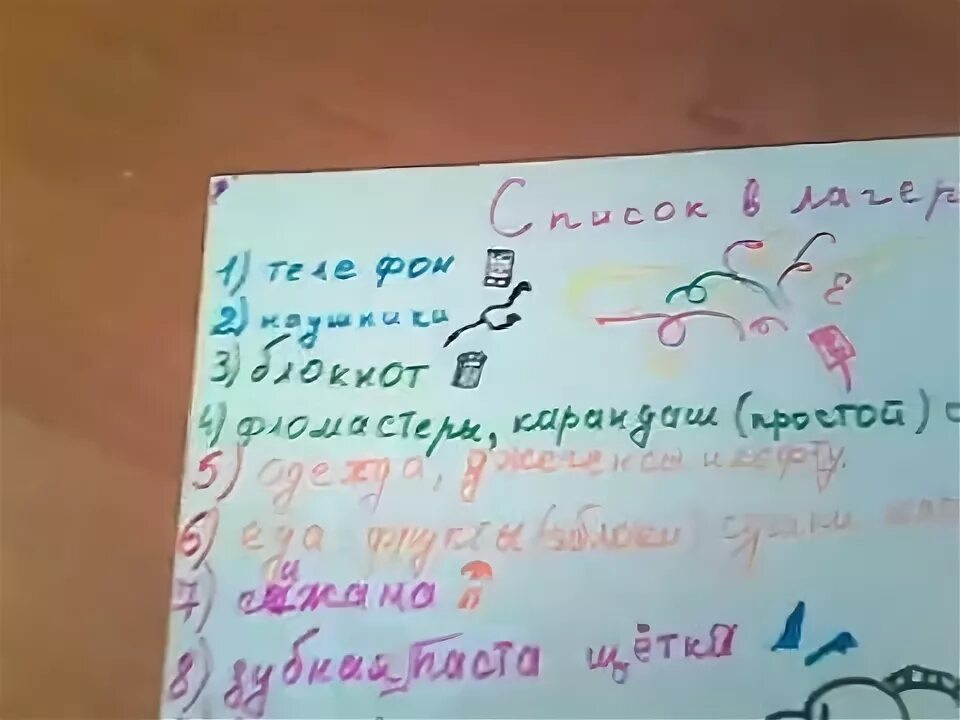 Список в лагер
1) телефон
2) наушники
3) блокнот
4) фломастеры, карандаш (простой)
5) одежда, джинсы и кофту.
6) еда фрукты (яблоки)
7) пижама
8) зубная паста щётка